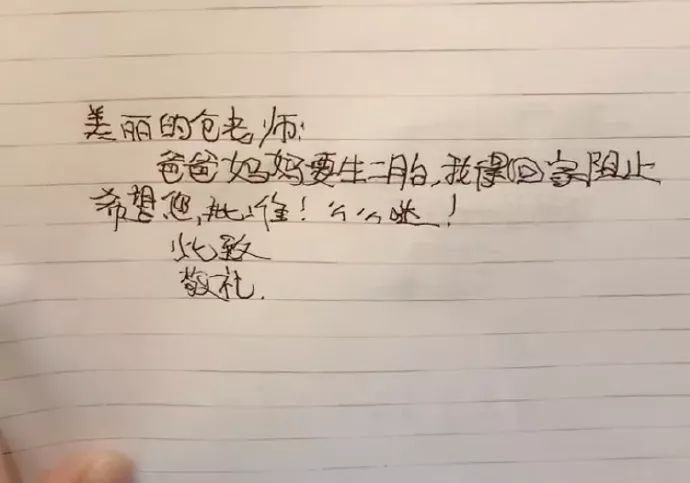 美丽的仓老师:
爸爸妈妈要生二胎,我得回家阻止
希望您,批准!么么哒!
此致
敬礼.